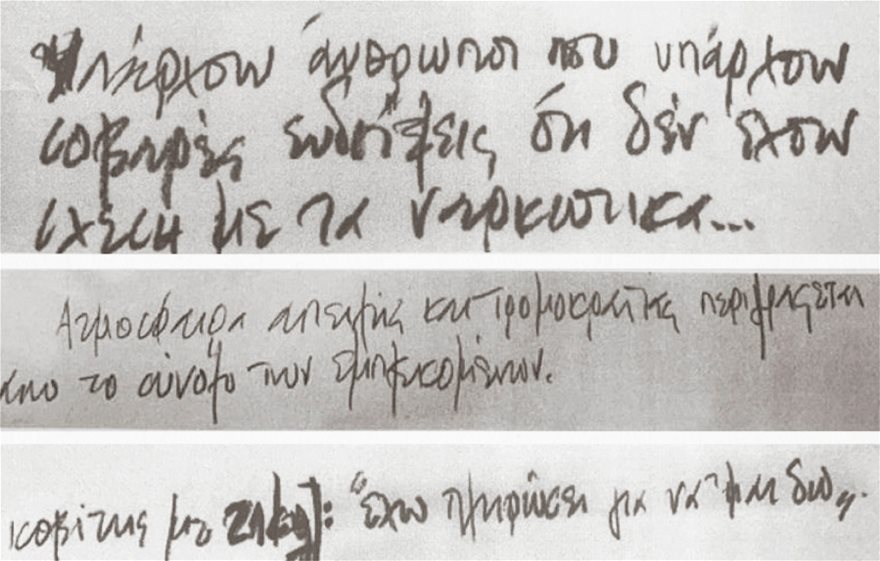 Υπάρχουν άνθρωποι που υπάρχουν
σοβαρές ενδείξεις ότι δέν έχουν
σχέση με τα ναρκωτικα...
Ατμοσφαιρα απειλής και τρομοκρατίας περιφράζεται
απο το σύνολο των εμπλεκομένων.
με : "έχω πληρώσει για να 'μαι δω".